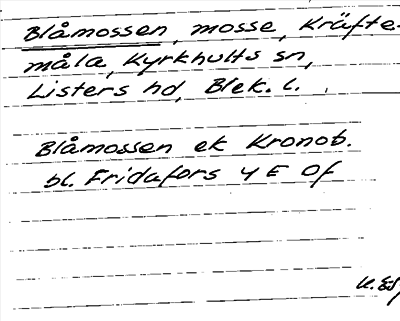 Blåmossen, mosse, Kräfte-
måla, Kyrkhults sn,
Listers hd, Blek. l.
Blåmossen ek Kronob.
bl. Fridafors 4 E 0f